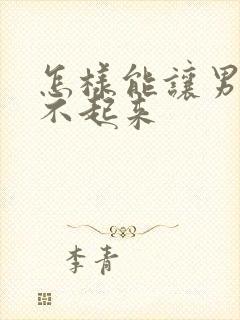 怎樣能讓男
不起来
李青